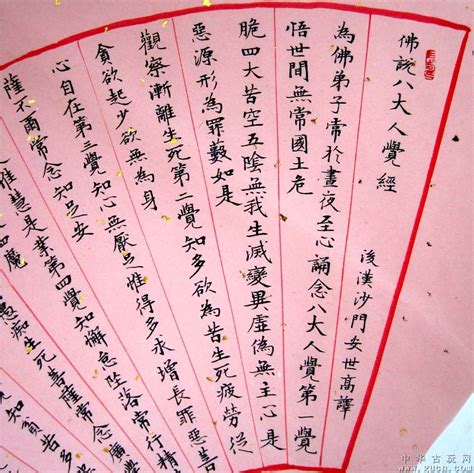 佛說八大人覺經
後漢沙門安世高譯
為佛弟子常於晝夜至心誦念八大人覺第一覺
悟世間無常國土危
脆四大苦空五陰無我生滅變異虛偽無主心是
惡源形為罪藪如是
觀察漸離生死第二覺知多欲為苦生死疲勞從
貪欲起少欲無為身
心自在第三覺知心無厭足惟得多求增長罪惡菩
薩不爾常念知足安
惟慧是業第四覺知懈怠墜落常行精
知魔
愚痴生死菩薩常念廣
知貧苦多
中华古玩网
WWW.GUCN.COM